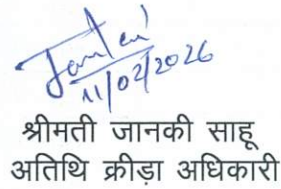 Janki
11/02/2026
श्रीमती जानकी साहू
अतिथि क्रीड़ा अधिकारी